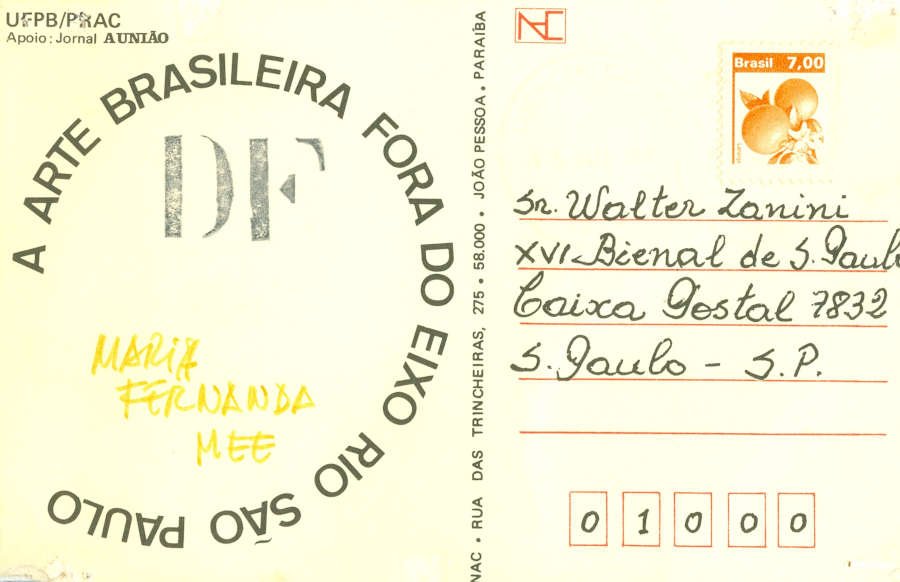 UFPB/PRAC
Apoio: Jornal A UNIÃO
A ARTE BRASILEIRA FORA DO EIXO RIO SÃO PAULO
DF
MARIA
FERNANDA
MEE
NAC • RUA DAS TRINCHEIRAS, 275 • 58.000 • JOÃO PESSOA • PARAÍBA
NAC
Brasil 7,00
Sr. Walter Zanini
XVI Bienal de S. Paulo
Caixa Postal 7832
S. Paulo - S.P.
0 1 0 0 0